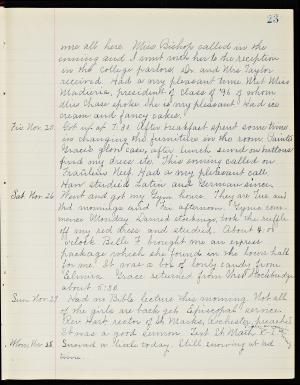 23
me all here. Miss Bishop called in the
evening and I went with her to the reception
in the college parlors. Dr. and Mrs. Taylor
received. Had a very pleasant time. Met Miss
president of class of '96 of whom
Miss Chase spoke. She is very pleasant. Had ice
cream and fancy cakes.
Fri. Nov. Got up at 7.30. After breakfast spent some time
in changing the furniture in the room.
Grace's glove case, after lunch sewed on buttons
fixed my dress etc. This evening called on
Had a very pleasant call.
Have studied Latin and German since.
Sat. Nov. 26 Went and got my Gym hours. They are six
mornings and afternoon. Gym com-
mences Monday. Darned stockings, took the ruffle
off my red dress and studied. About 4.00
o'clock Belle F. brought me an express
package which she found in the town hall
for me. It was a box of lovely cakes from
Elmira. Grace returned from Miss
about 5:30.
Sun. Nov. 27. Had no Bible lecture this morning. Not all
of the girls are back yet. Episcopal service.
Rev. Hart rector of St Marks, Rochester, preached
It was a good sermon. Text St. Matt.
Mon. Nov. 28 Snowed a little today. Still snowing at bed
time.